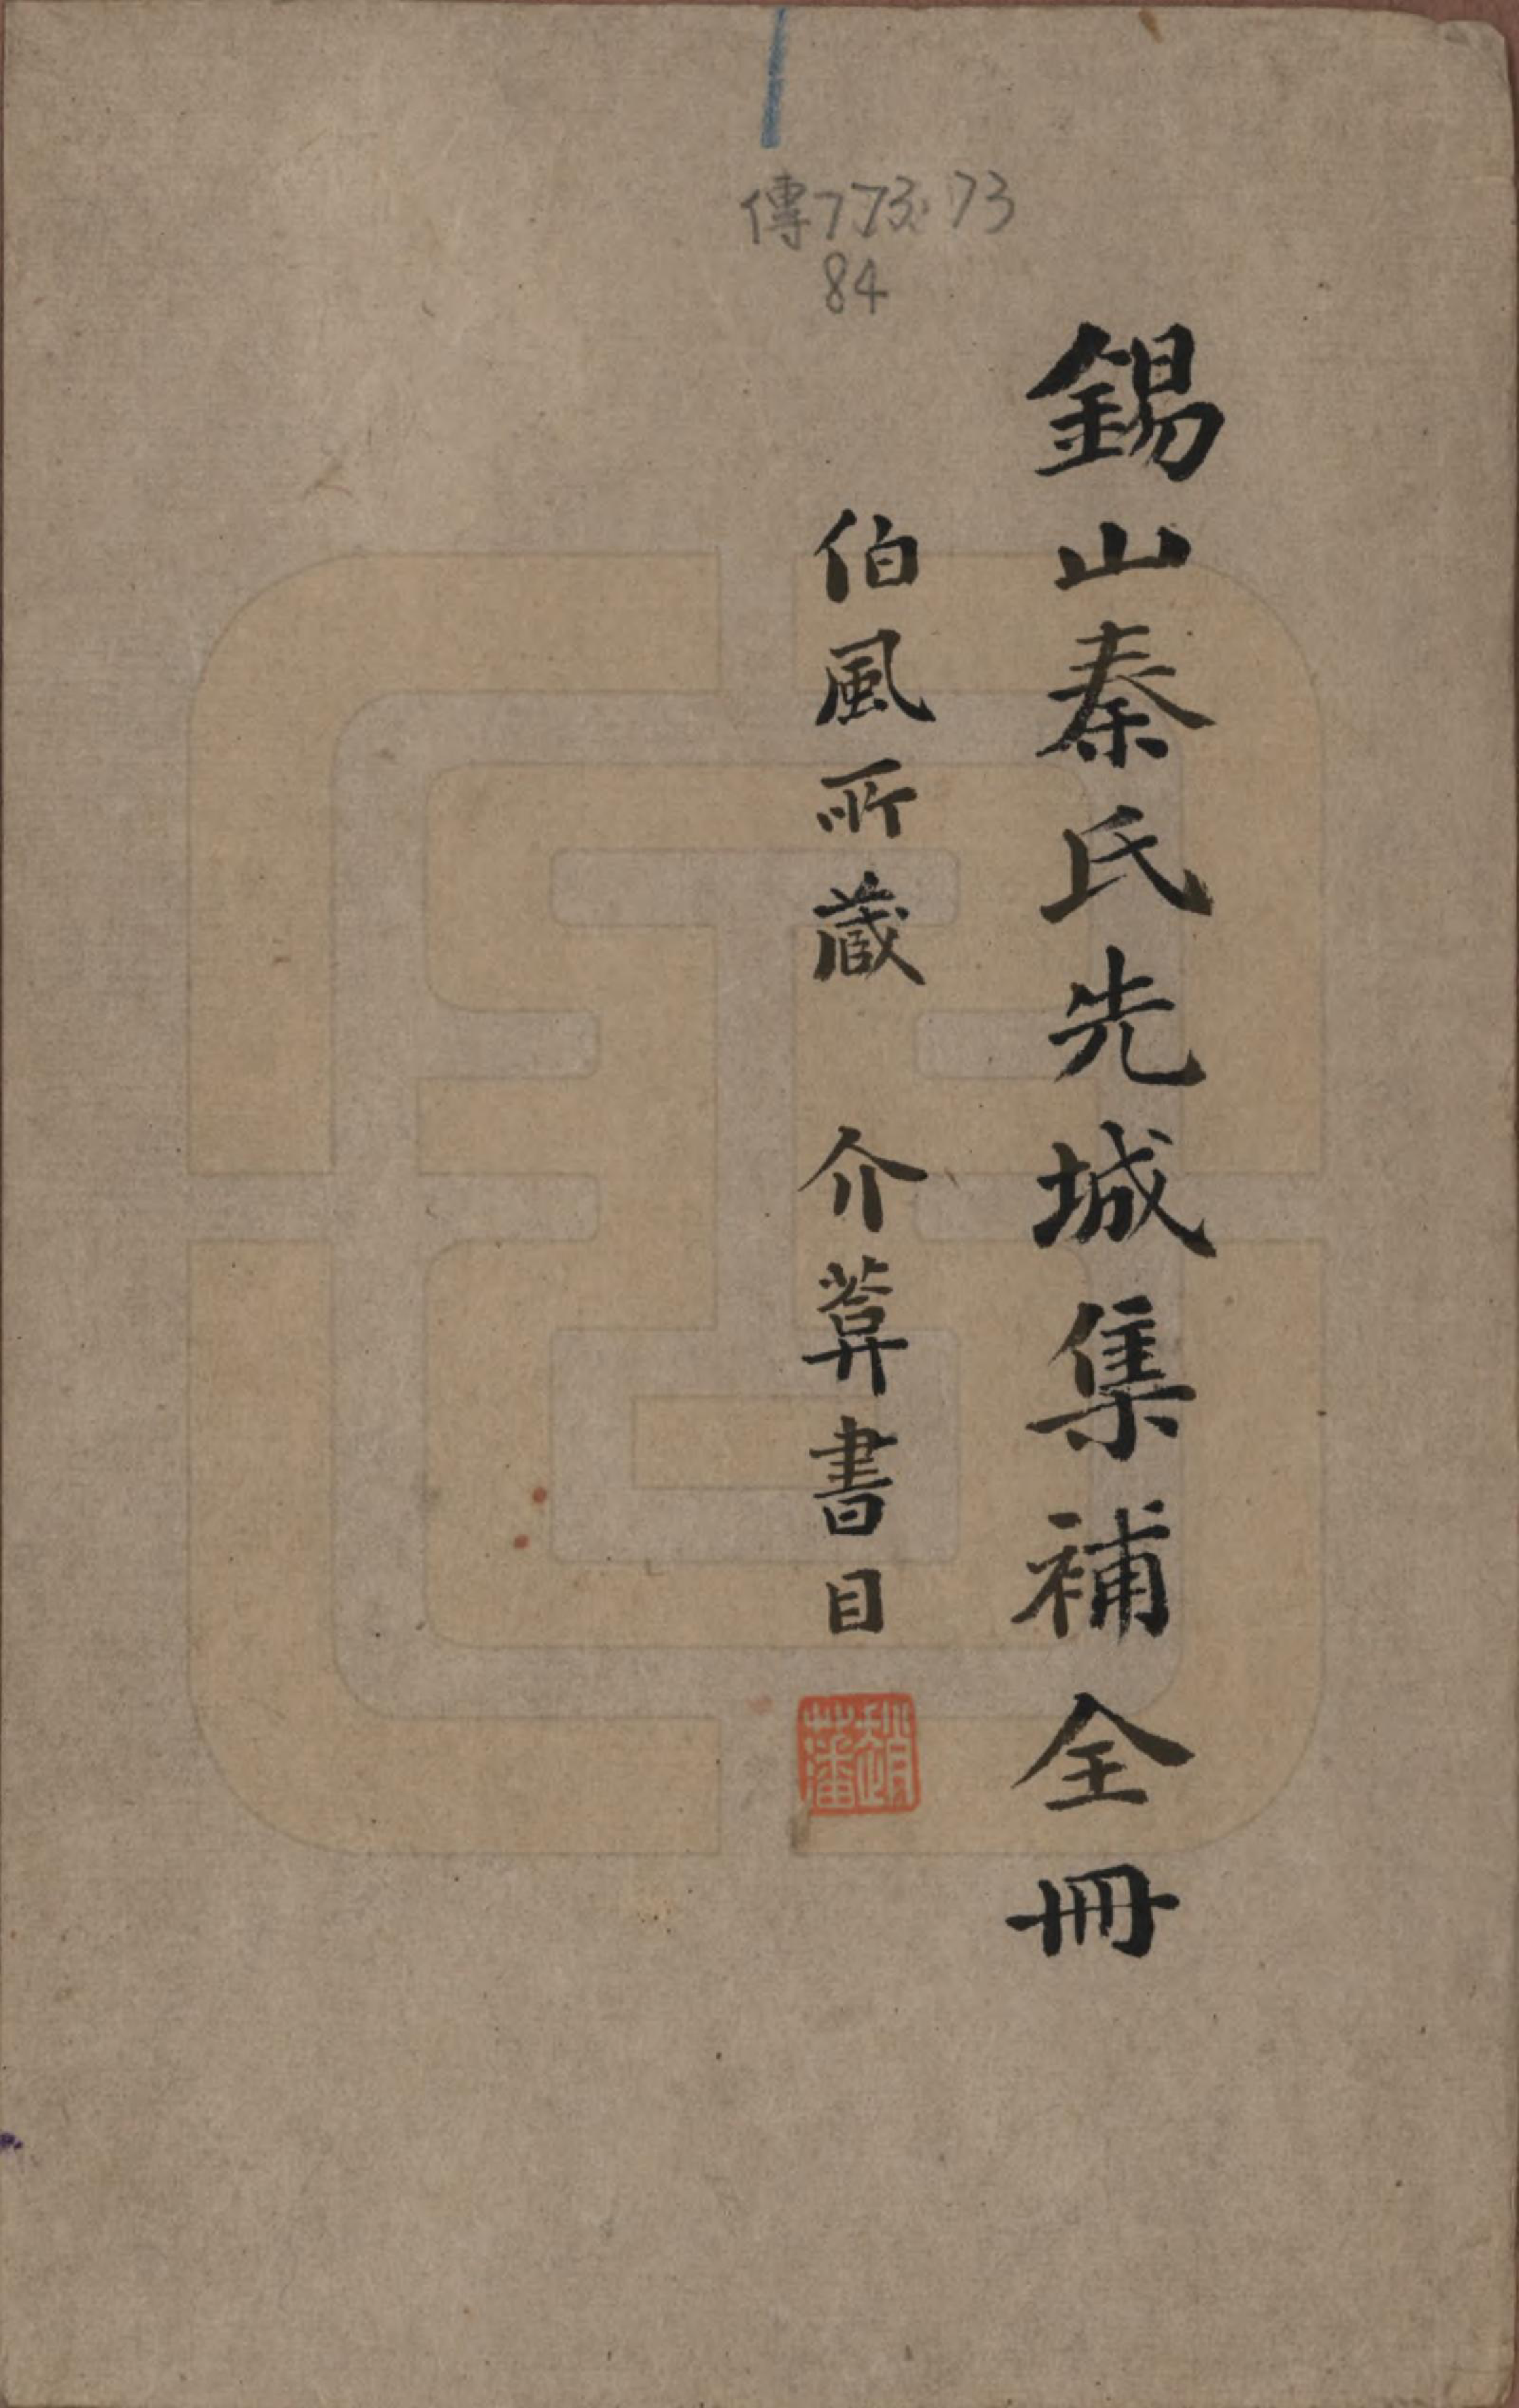 傳773.73
84
錫山秦氏先城集補全冊
伯風所蔵 介葊書目
趙
藩